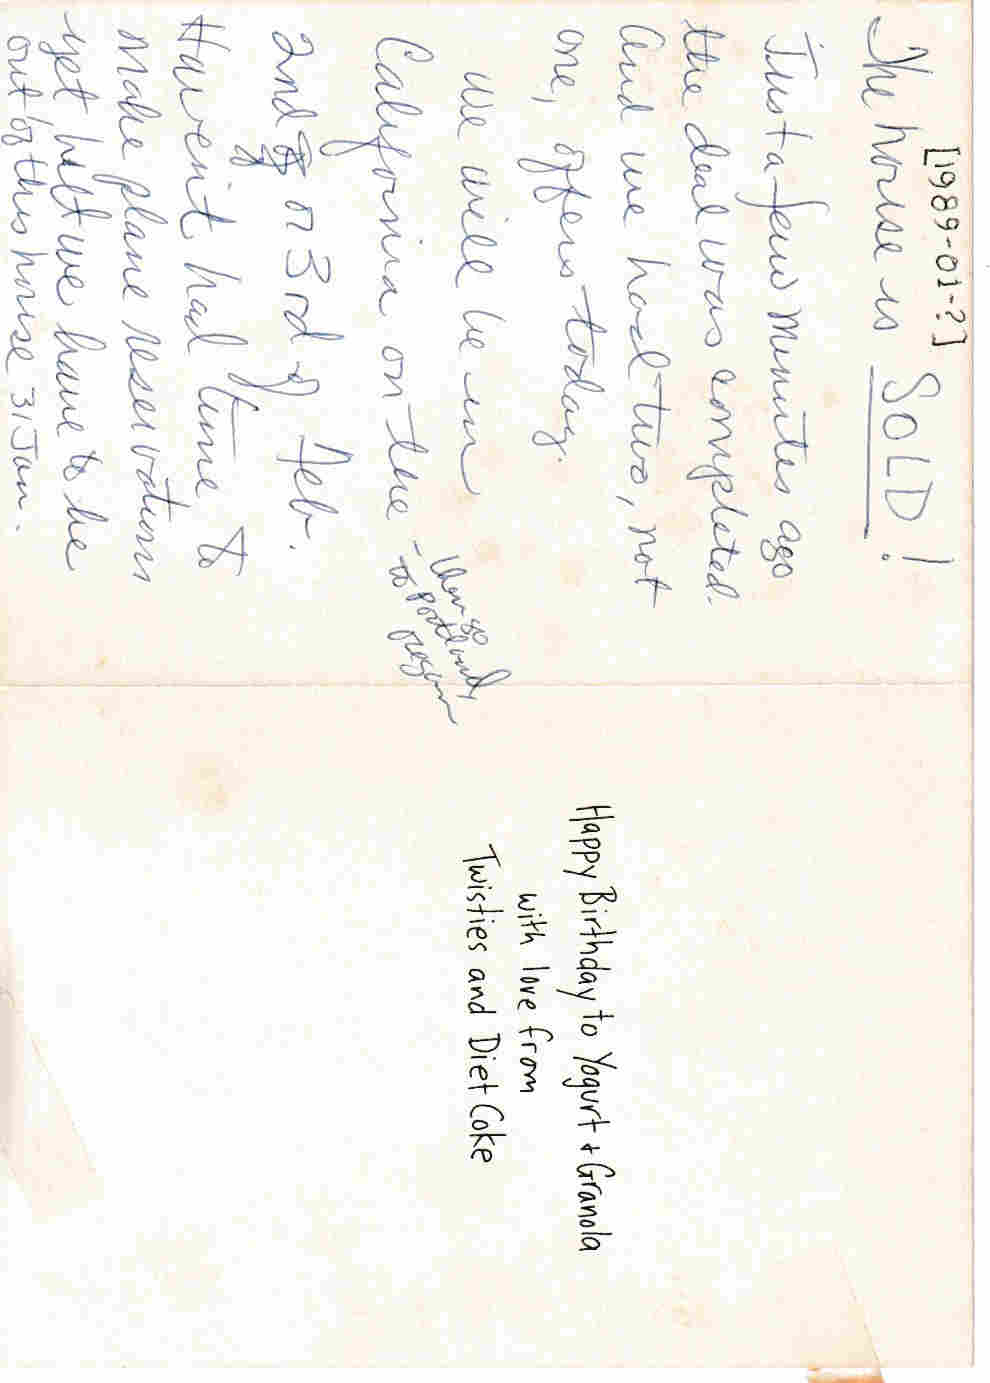 [1989-01-?]
The house is SOLD!
Just a few minutes ago
the deal was completed.
And we had two, not
one, offers today.
We will be in
California on the
- then go
to Portland,
Oregon
2nd or 3rd of Feb.
Haven't had time to
make plane reservations
yet, but we have to be
out of this house 31 Jan.
Happy Birthday to Yogurt + Granola
with love from
Twisties and Diet Coke